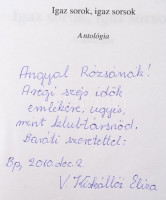 Igaz sorok, igaz sorsok
Antológia
Angyal Rózsának!
A régi szép idők
emlékére, ugyis,
mint klubtársnőd.
Baráti szeretettel:
Bp, 2010. dec. 2.
V Kisteállói Eliza